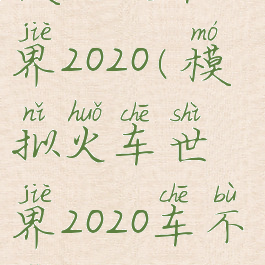 jiè mó
界2020(模
nǐ huǒ chē shì
拟火车世
jiè chē bù
界2020车不